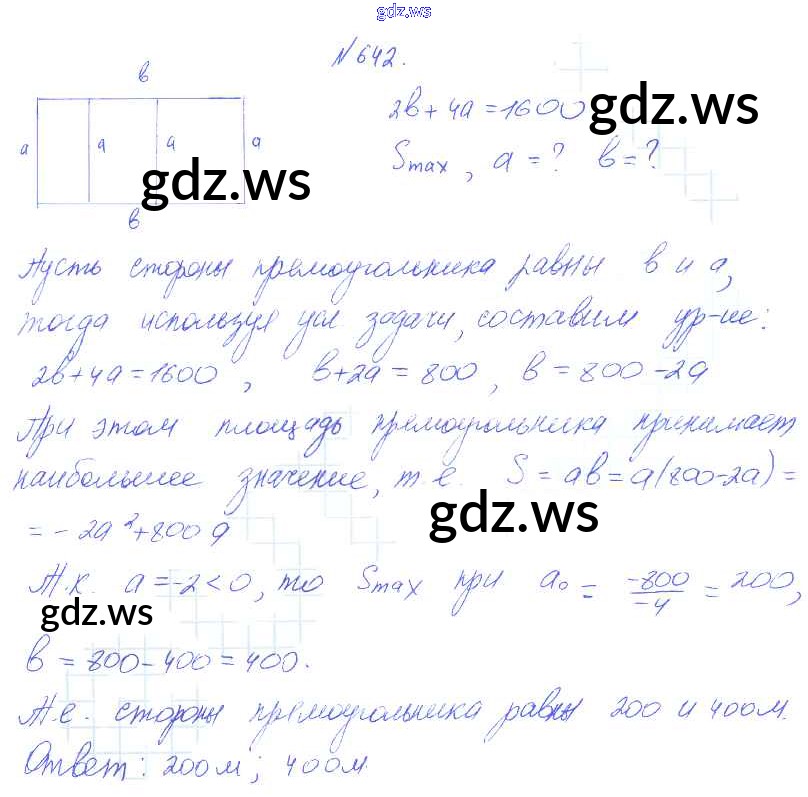 gdz.ws
№642.
в
2в + 4а = 1600
gdz.ws
а а а а
Smax, а = ? в = ?
gdz.ws
в
Пусть стороны прямоугольника равны в и а,
тогда используя усл. задачи, составим ур-ие:
2в + 4а = 1600, в + 2а = 800, в = 800 - 2а
При этом площадь прямоугольника принимает
наибольшее значение, т.е. S = ав = а(800 - 2а) =
= - 2а² + 800 а
gdz.ws
Т.к. а = -2 < 0, то Smax при а₀ = -800/-4 = 200,
gdz.ws
в = 800 - 400 = 400.
Т.е. стороны прямоугольника равны 200 и 400м.
Ответ: 200м; 400м